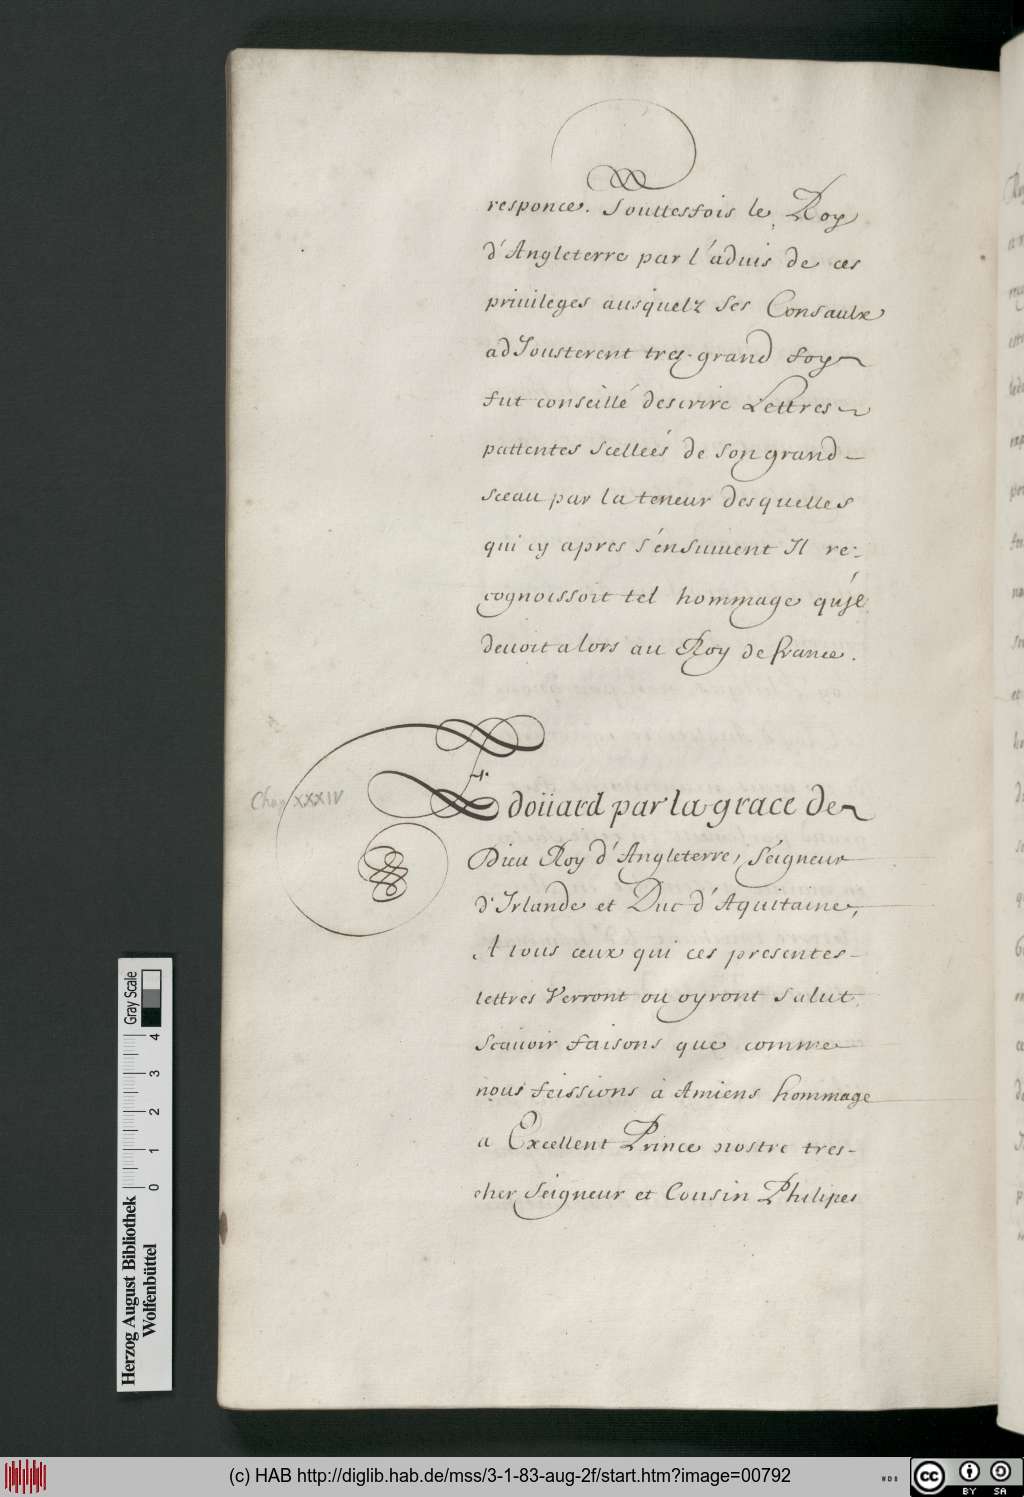 responce. Touttesfois le Roy
d'Angleterre par l'aduis de ces
priuileges ausquelz ses Consaulx
adJousterent tres-grand foy
fut conseillé descrire Lettres
pattentes scelleés de son grand
sceau par la teneur desquelles
qui cy apres s'ensuiuent Il re-
cognoissoit tel hommage qu'jl
deuoit alors au Roy de france.
Chap XXXIV
Edoüard par la grace de
Dieu Roy d'Angleterre, Seigneur
d'Irlande et Duc d'Aquitaine,
A tous ceux qui ces presentes
lettres Verront ou oyront Salut.
Scauoir faisons que comme
nous feissions à Amiens hommage
a Excellent Prince nostre tres-
cher Seigneur et Cousin Philipes
Herzog August Bibliothek
Wolfenbüttel
0 1 2 3 4
Gray Scale
(c) HAB http://diglib.hab.de/mss/3-1-83-aug-2f/start.htm?image=00792
WDB
cc
BY SA